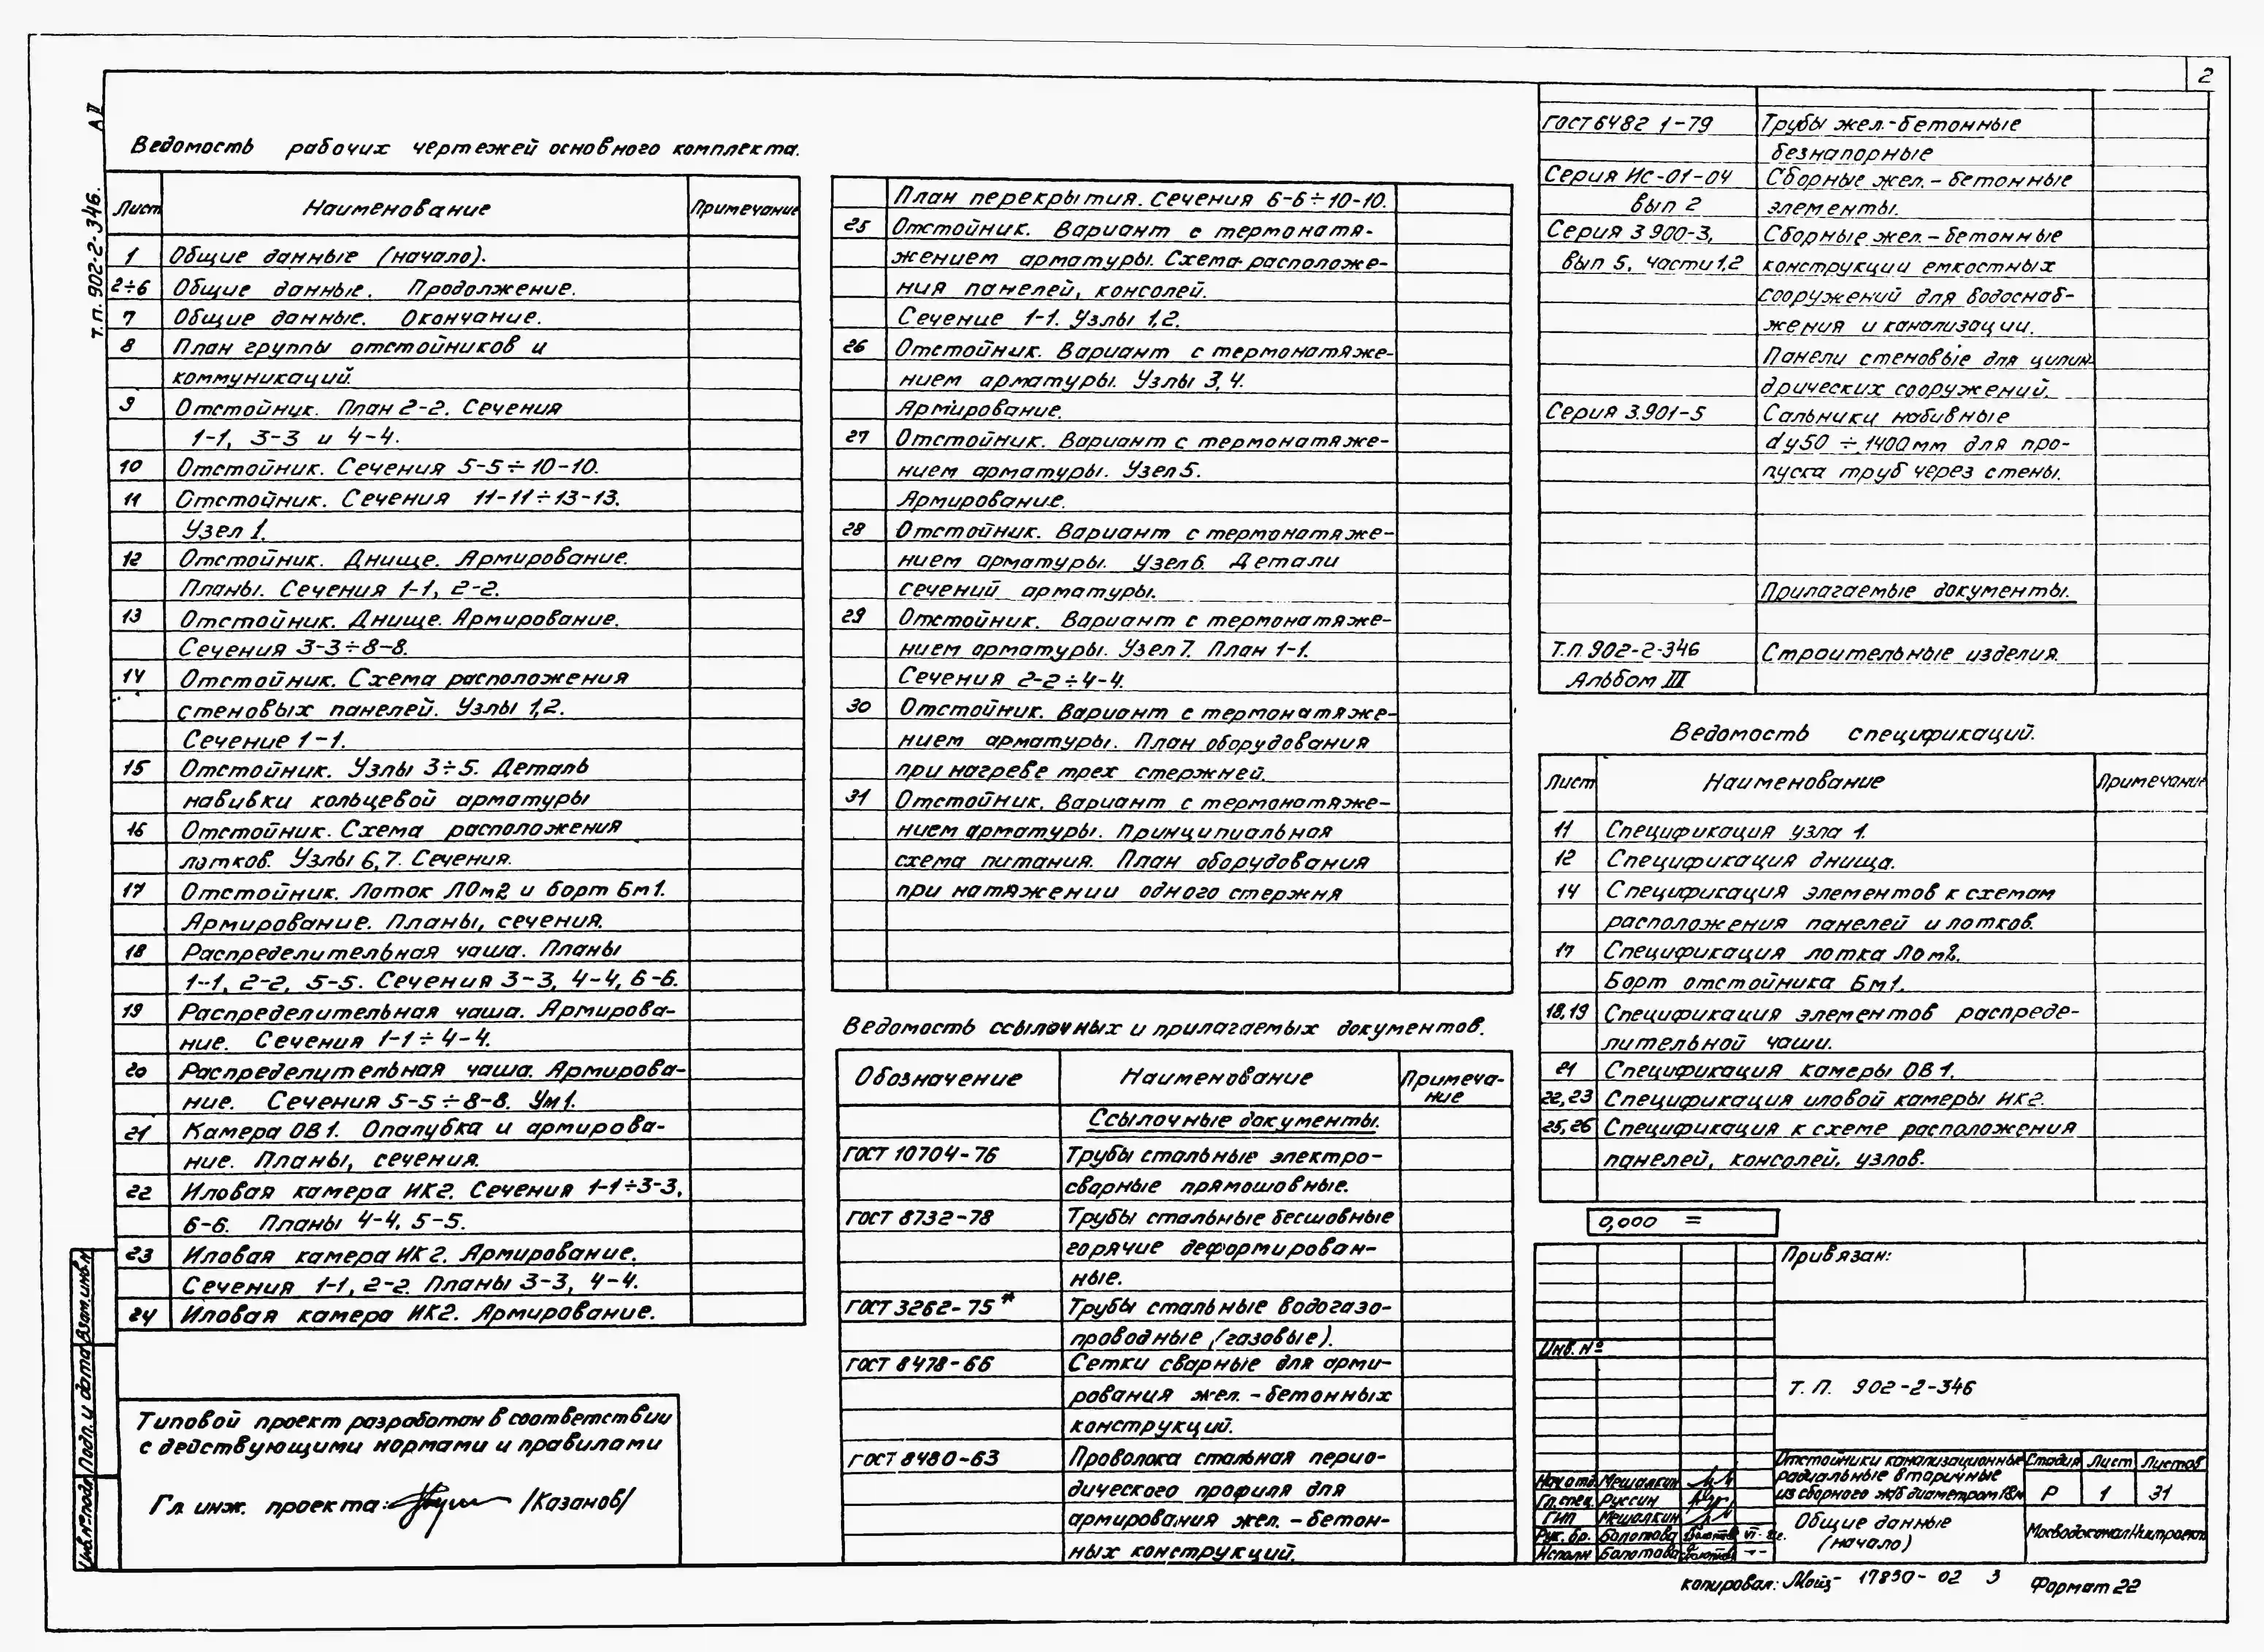 2
Т.П. 902-2-346. А IV
Ведомость рабочих чертежей основного комплекта.
Лист Наименование Примечание
1 Общие данные (начало).
2÷6 Общие данные. Продолжение.
7 Общие данные. Окончание.
8 План группы отстойников и
коммуникаций.
9 Отстойник. План 2-2. Сечения
1-1, 3-3 и 4-4.
10 Отстойник. Сечения 5-5÷10-10.
11 Отстойник. Сечения 11-11÷13-13.
Узел 1.
12 Отстойник. Днище. Армирование.
Планы. Сечения 1-1, 2-2.
13 Отстойник. Днище. Армирование.
Сечения 3-3÷8-8.
14 Отстойник. Схема расположения
стеновых панелей. Узлы 1,2.
Сечение 1-1.
15 Отстойник. Узлы 3÷5. Деталь
навивки кольцевой арматуры
16 Отстойник. Схема расположения
лотков. Узлы 6,7. Сечения.
17 Отстойник. Лоток ЛОм2 и борт Бм1.
Армирование. Планы, сечения.
18 Распределительная чаша. Планы
1-1, 2-2, 5-5. Сечения 3-3, 4-4, 6-6.
19 Распределительная чаша. Армирова-
ние. Сечения 1-1÷4-4.
20 Распределительная чаша. Армирова-
ние. Сечения 5-5÷8-8. Ум1.
21 Камера ОВ1. Опалубка и армирова-
ние. Планы, сечения.
22 Иловая камера ИК2. Сечения 1-1÷3-3,
6-6. Планы 4-4, 5-5.
23 Иловая камера ИК2. Армирование.
Сечения 1-1, 2-2. Планы 3-3, 4-4.
24 Иловая камера ИК2. Армирование.
План перекрытия. Сечения 6-6÷10-10.
25 Отстойник. Вариант с термонатя-
жением арматуры. Схема расположе-
ния панелей, консолей.
Сечение 1-1. Узлы 1,2.
26 Отстойник. Вариант с термонатяже-
нием арматуры. Узлы 3,4.
Армирование.
27 Отстойник. Вариант с термонатяже-
нием арматуры. Узел 5.
Армирование.
28 Отстойник. Вариант с термонатяже-
нием арматуры. Узел 6. Детали
сечений арматуры.
29 Отстойник. Вариант с термонатяже-
нием арматуры. Узел 7. План 1-1.
Сечения 2-2÷4-4.
30 Отстойник. Вариант с термонатяже-
нием арматуры. План оборудования
при нагреве трех стержней.
31 Отстойник. Вариант с термонатяже-
нием арматуры. Принципиальная
схема питания. План оборудования
при натяжении одного стержня
Ведомость ссылочных и прилагаемых документов.
Обозначение Наименование Примеча-
ние
Ссылочные документы.
ГОСТ 10704-76 Трубы стальные электро-
сварные прямошовные.
ГОСТ 8732-78 Трубы стальные бесшовные
горячие деформирован-
ные.
ГОСТ 3262-75* Трубы стальные водогазо-
проводные (газовые).
ГОСТ 8478-66 Сетки сварные для арми-
рования жел.-бетонных
конструкций.
ГОСТ 8480-63 Проволока стальная перио-
дического профиля для
армирования жел.-бетон-
ных конструкций.
ГОСТ 6482 1-79 Трубы жел.-бетонные
безнапорные
Серия ИС-01-04 Сборные жел.-бетонные
вып 2 элементы.
Серия 3 900-3, Сборные жел.-бетонные
вып 5, части 1,2 конструкции емкостных
сооружений для водоснаб-
жения и канализации.
Панели стеновые для цилин-
дрических сооружений.
Серия 3.901-5 Сальники набивные
dу50 ÷ 1400мм для про-
пуска труб через стены.
Прилагаемые документы.
Т.П 902-2-346 Строительные изделия.
Альбом III
Ведомость спецификаций.
Лист Наименование Примечание
11 Спецификация узла 1.
12 Спецификация днища.
14 Спецификация элементов к схемам
расположения панелей и лотков.
17 Спецификация лотка ЛОм2.
Борт отстойника Бм1.
18,19 Спецификация элементов распреде-
лительной чаши.
21 Спецификация камеры ОВ1.
22,23 Спецификация иловой камеры ИК2.
25,26 Спецификация к схеме расположения
панелей, консолей, узлов.
0,000 =
Привязан:
Инв. №
Т. П. 902-2-346
Отстойники канализационные
радиальные вторичные
из сборного ж/б диаметром 18м
Стадия Лист Листов
Р 1 31
Нач отд Мешалкин
Гл.спец. Руссин
ГИП Мешалкин
Рук. бр. Болотова
Исполн Болотова
Общие данные
(начало)
МосводоканалНиипроект
Типовой проект разработан в соответствии
с действующими нормами и правилами
Гл. инж. проекта: /Казанов/
Взам. инв. №
Подп. и дата
Инв. № подл
копировал: 17850-02 3 Формат 22